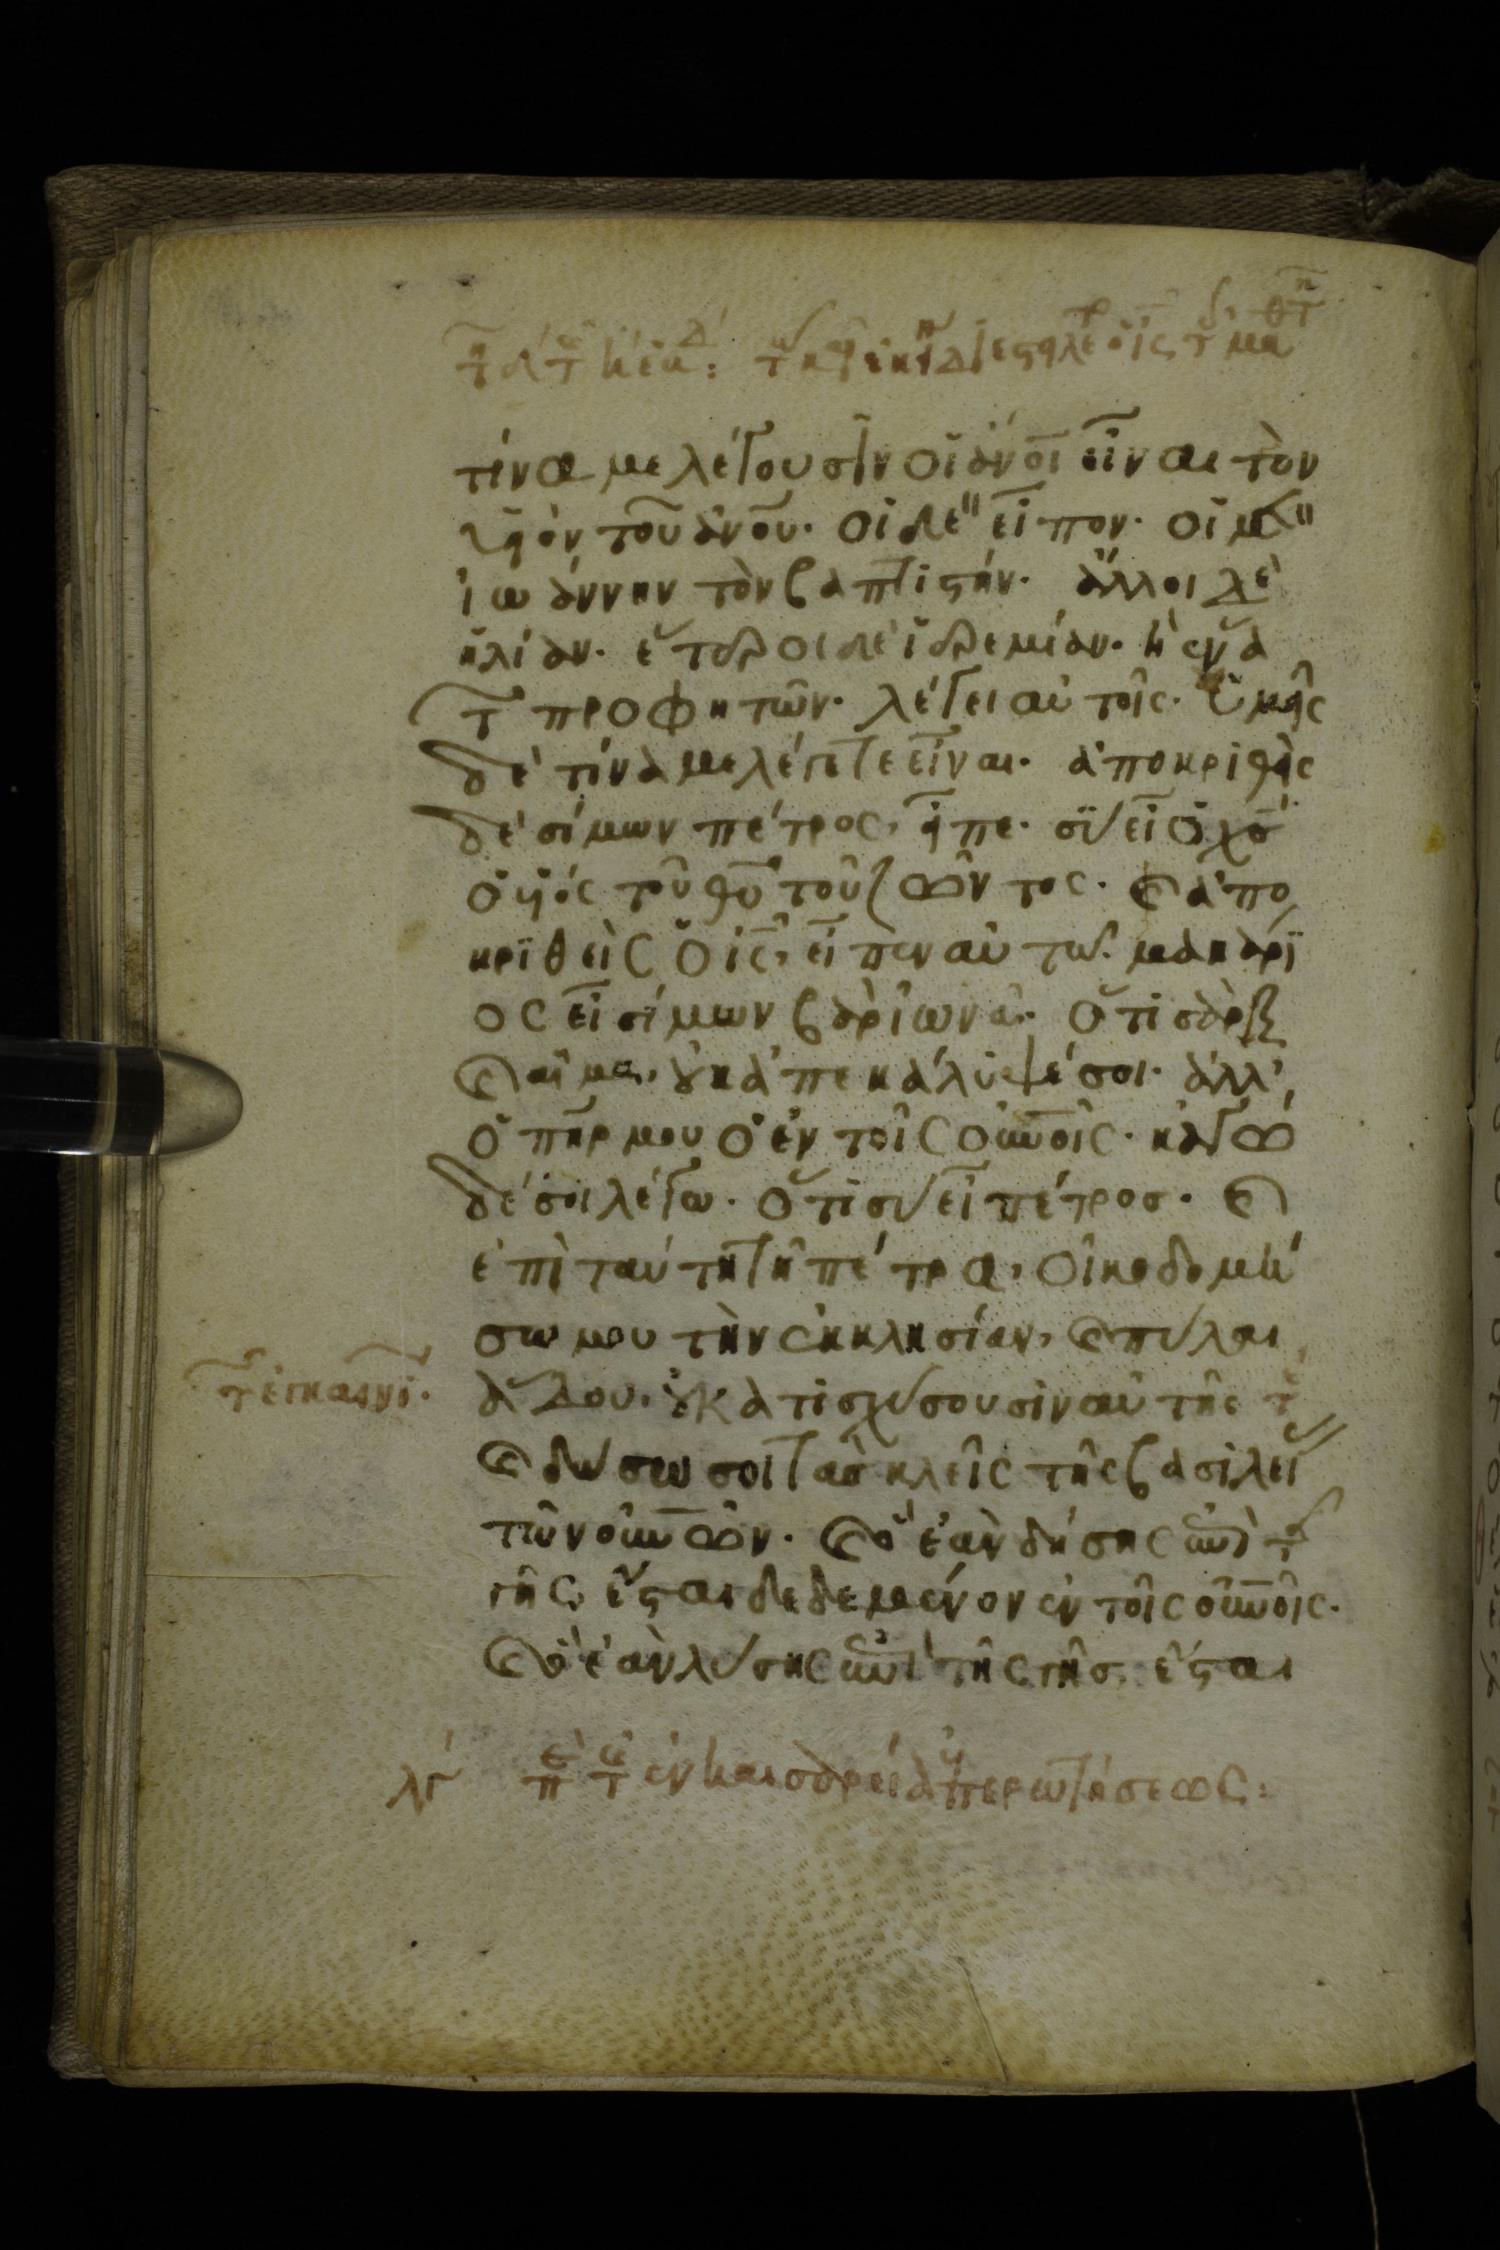 τίνα με λέγουσιν οἱ ἀν̅οι εἶναι τὸν
υἱὸν τοῦ ἀν̅ου· οἱ δὲ εἶπον· οἱ μὲν
ἰωάννην τὸν βαπτιστήν· ἄλλοι δὲ
ἠλίαν· ἕτεροι δὲ ἰερεμίαν· ἢ ἕνα
τ̅ προφητῶν· λέγει αὐτοῖς· ὑμεῖς
δὲ τίνα με λέγετε εἶναι· ἀποκριθεὶς
δὲ σίμων πέτρος, εἶπε· σὺ εἶ ὁ χσ̅
ὁ υἱός τοῦ θυ̅ τοῦ ζῶντος· καὶ ἀπο
κριθεὶς ὁ ις̅, εἶπεν αὐτῶ· μακάρι
ος εἶ σίμων βὰρ ἰωνᾶ· ὅτι σὰρξ
καὶ αἷμα, οὐκ ἀπεκάλυψέ σοι· ἀλλ'
ὁ πη̅ρ μου ὁ ἐν τοῖς οὐν̅οις· κἀγὼ
δέ σοι λέγω· ὅτι σὺ εἶ πέτροσ· καὶ
ἐπὶ ταύτη τῆ πέτρα, οἰκοδομή
σω μου τὴν ἐκκλησίαν, καὶ πύλαι
ἅδου, οὐ κατισχύσουσιν αὐτῆς
καὶ δώσω σοι τὰσ κλεῖς τῆς βασιλεί
τῶν οὐν̅ῶν· καὶ ὃ ἐὰν δήσης ἐπὶ τ
γῆς, ἔσται δεδεμένον ἐν τοῖς οὐν̅οῖς·
καὶ ὃ ἐὰν λύσης ἐπὶ τῆς γῆσ, ἔσται
λγ π τ ἐν καισαρεία ἐπερωτήσεως: